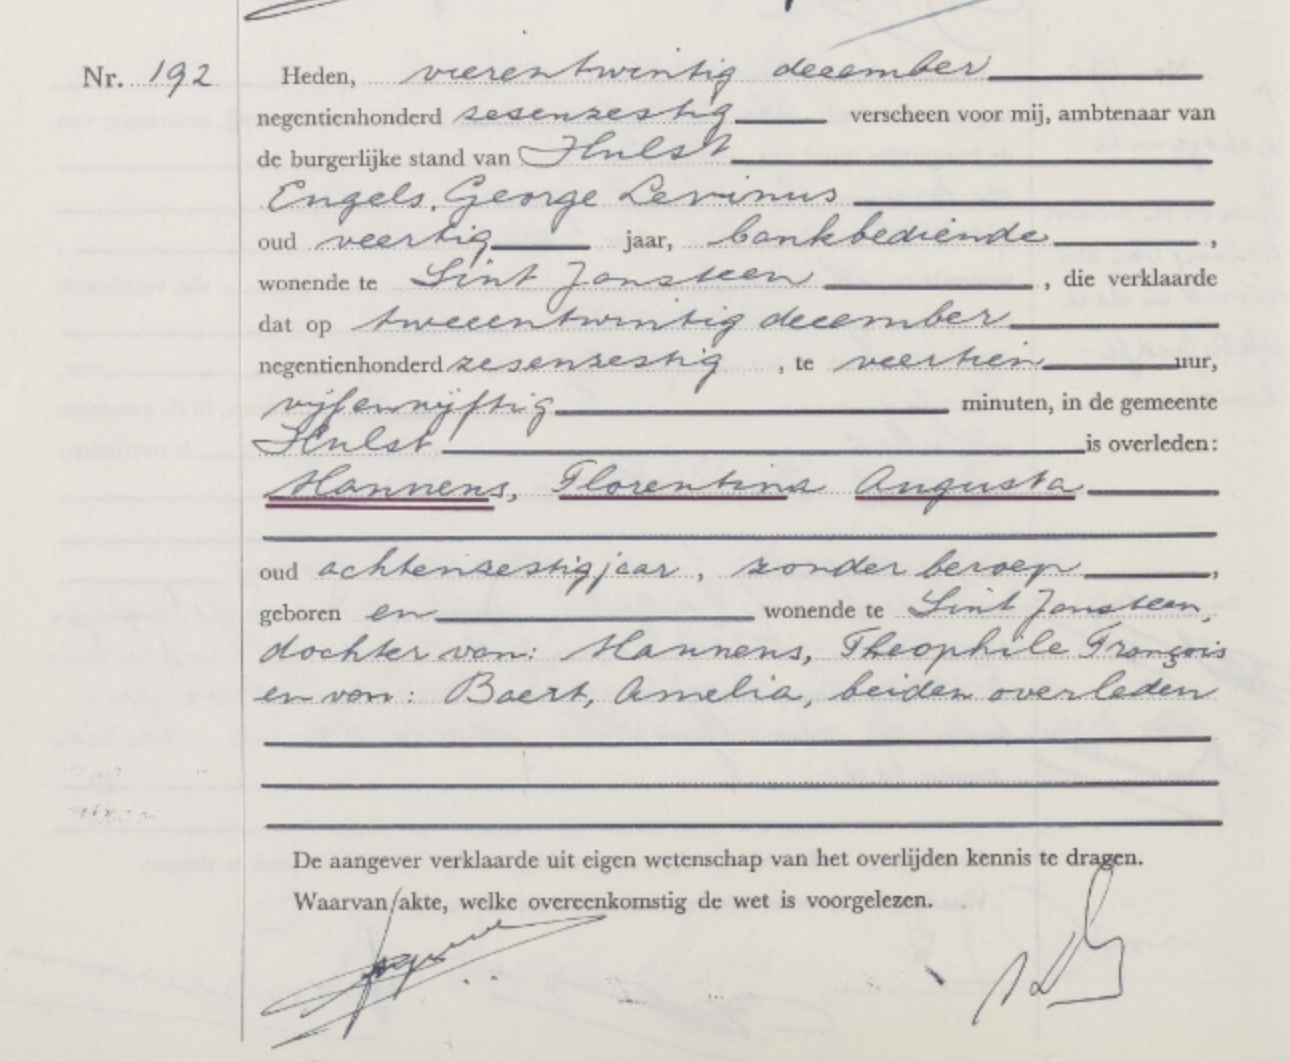 Nr. 192 Heden, vierentwintig december
negentienhonderd zesenzestig verscheen voor mij, ambtenaar van
de burgerlijke stand van Hulst
Engels, George Levinus
oud veertig jaar, bankbediende,
wonende te Sint Jansteen, die verklaarde
dat op tweeentwintig december
negentienhonderd zesenzestig, te veertien uur,
vijfenvijftig minuten, in de gemeente
Hulst is overleden:
Mannens, Florentina Augusta
oud achtenzestig jaar, zonder beroep,
geboren en wonende te Sint Jansteen,
dochter van: Mannens, Theophile François
en van: Baert, Amelia, beiden overleden
De aangever verklaarde uit eigen wetenschap van het overlijden kennis te dragen.
Waarvan akte, welke overeenkomstig de wet is voorgelezen.